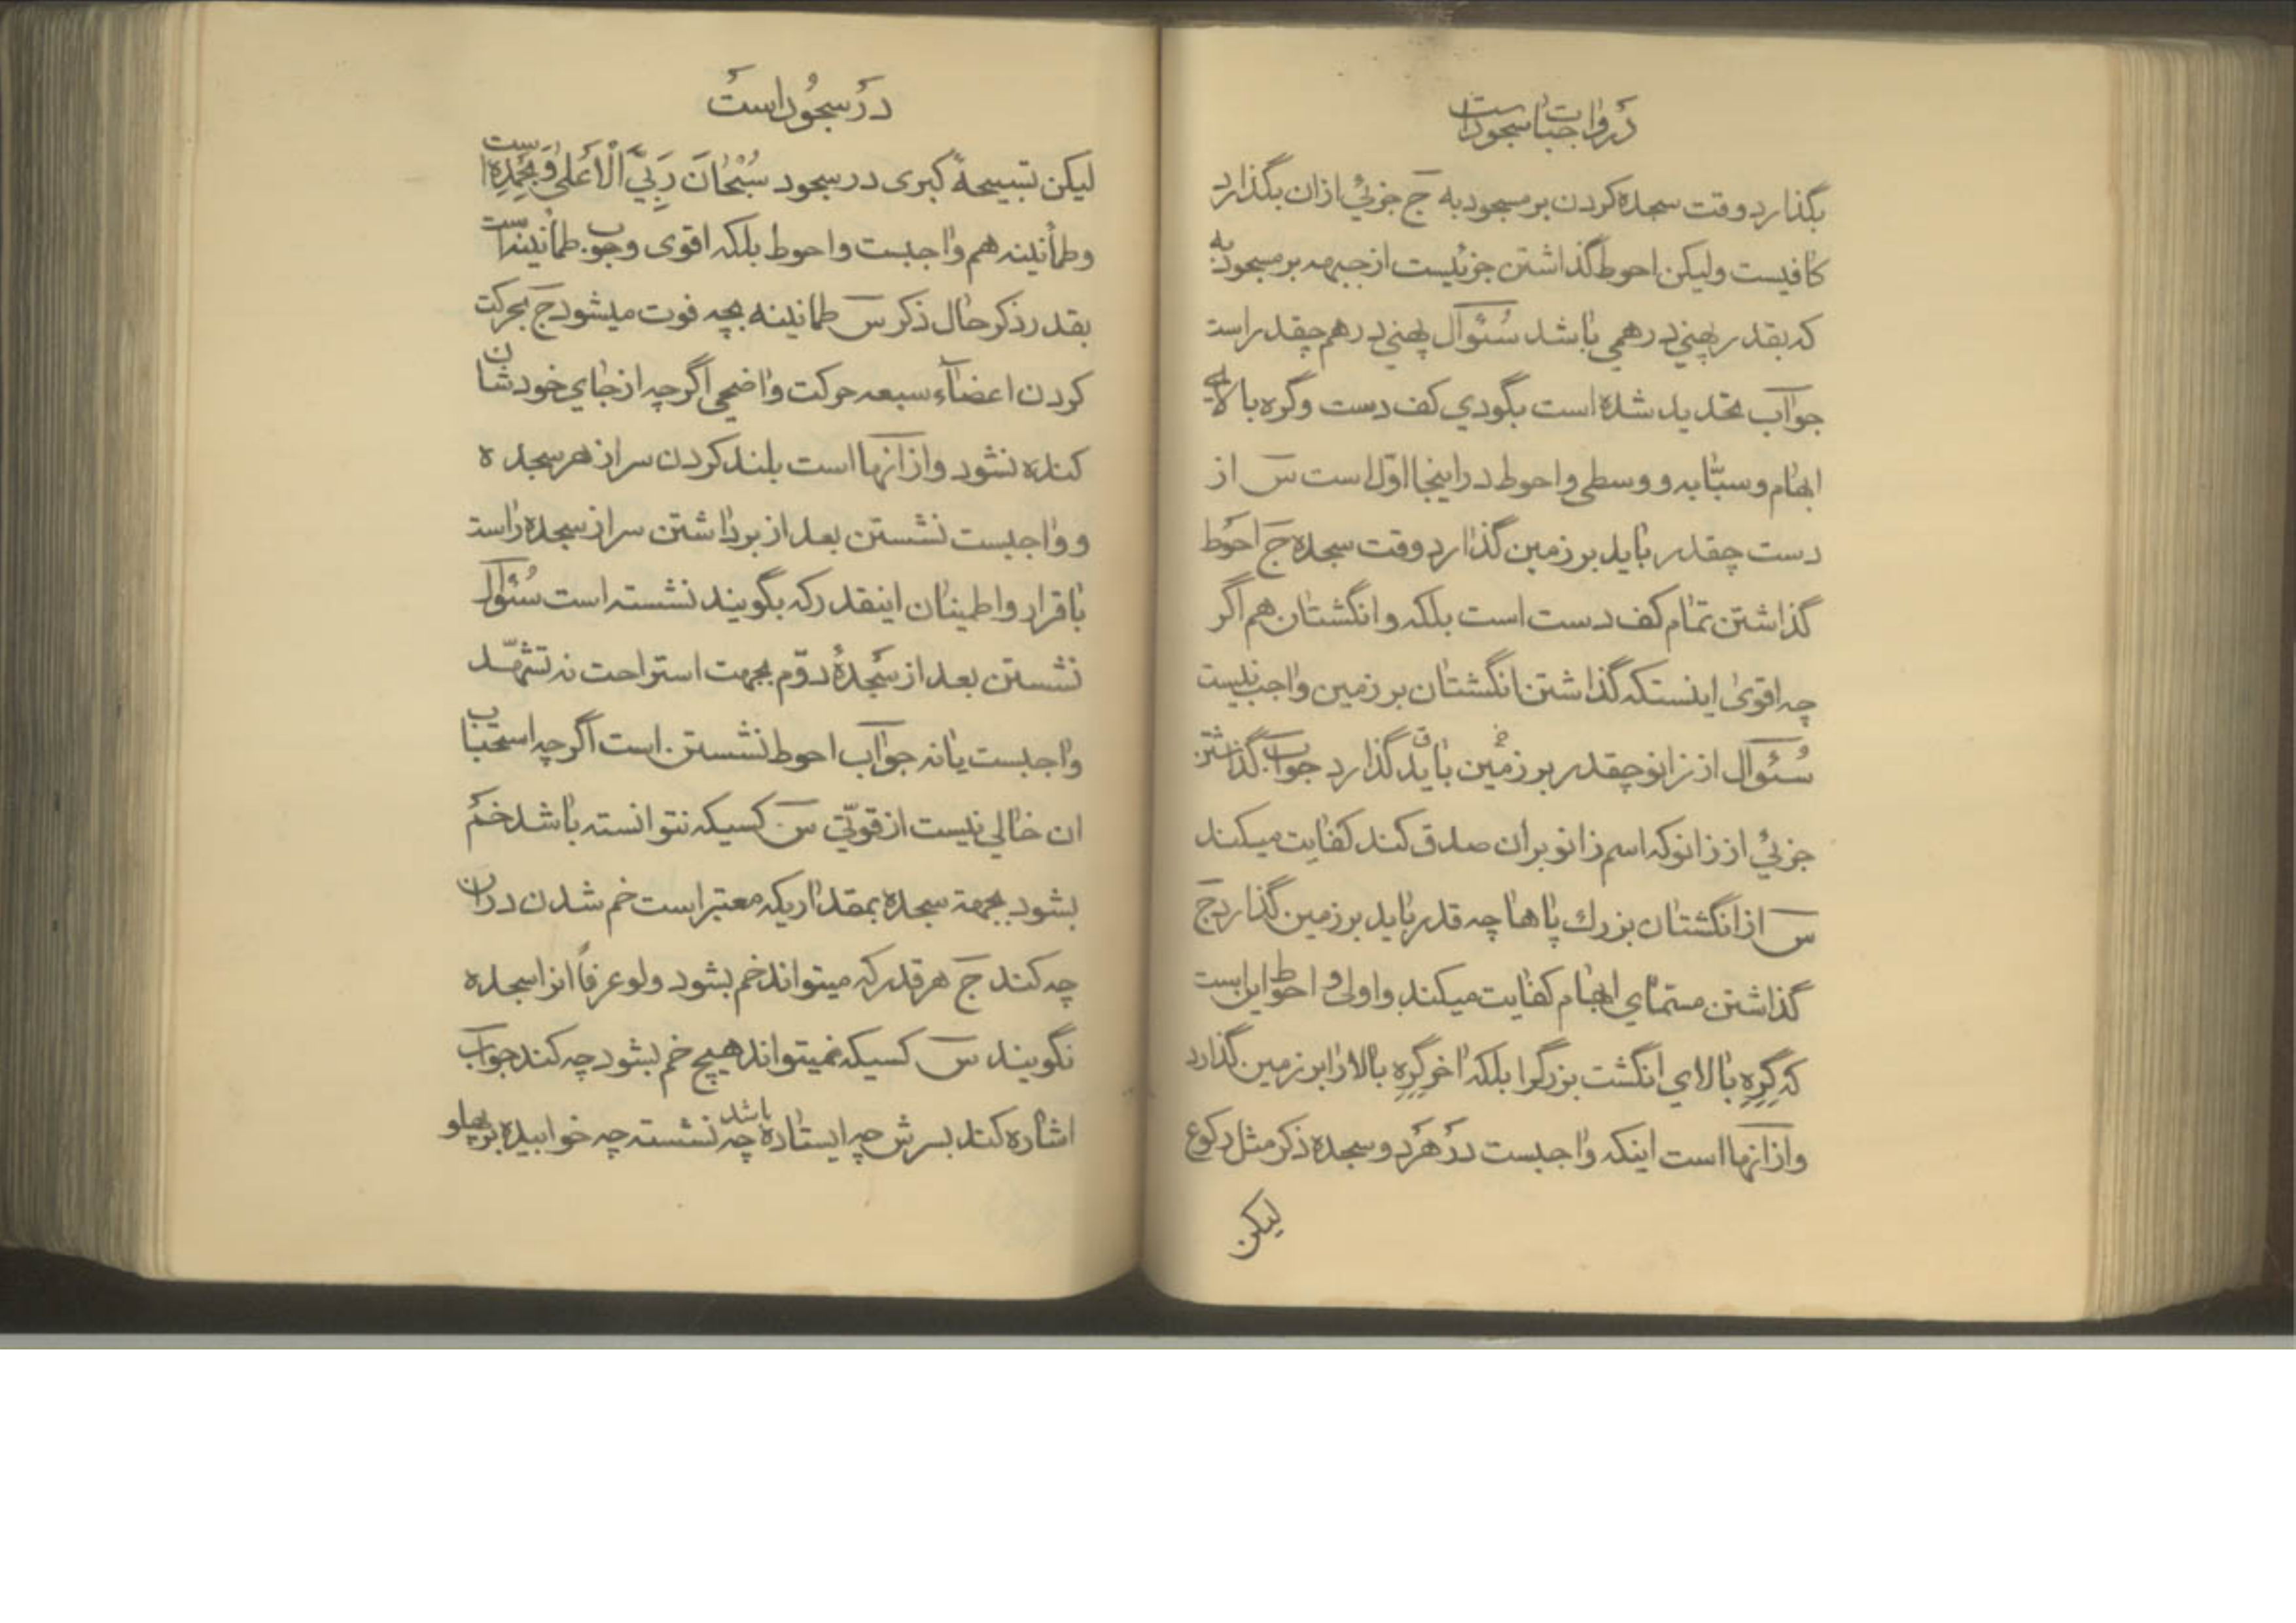 در واجبات سجود است
بگذارد وقت سجده کردن بر مسجود به ج جزئی از ان بگذارد
کافیست ولیکن احوط گذاشتن جزئیست از جبهه بر مسجود به
که بقدر پهنی درهمی باشد سئوال پهنی درهم چقدر است
جواب تحدید شده است بگودی کف دست و گره بالای
ابهام و سبّابه و وسطی و احوط در اینجا اوّل است س از
دست چقدر باید بر زمین گذارد وقت سجده ج احوط
گذاشتن تمام کف دست است بلکه و انگشتان هم اگر
چه اقوی اینستکه گذاشتن انگشتان بر زمین واجب نیست
سُئوال از زانو چقدر بر زمین باید گذارد جواب گذاشتن
جزئی از زانو که اسم زانو بران صدق کند کفایت میکند
س از انگشتان بزرك پاها چه قدر باید بر زمین گذارد ج
گذاشتن مسمای ابهام کفایت میکند و اولی و احوط اینست
که گِرِهِ بالای انگشت بزرگرا بلکه اخر گِرِهِ بالا را بر زمین گذارد
و از آنها است اینکه واجبست در هر دو سجده ذکر مثل رکوع
لیکن
در سجود است
لیکن تسبیحهٔ کبری در سجود سُبْحٰانَ رَبِّيَ الْاَعْلیٰ وَ بِحَمْدِهِ است
و طمأنینه هم واجبست و احوط بلکه اقوی وجوب طمأنینه است
بقدر ذکر حال ذکر س طمانینه بچه فوت میشود ج بحرکت
کردن اعضآء سبعه حرکت واضحی اگرچه از جای خودشان
کنده نشود و از آنها است بلند کردن سر از هر سجده
و واجبست نشستن بعد از برداشتن سر از سجده راست
با قرار و اطمینان اینقدر که بگویند نشسته است سُئوال
نشستن بعد از سَجدهٔ دوّم بجهت استراحت نه تشهّد
واجبست یا نه جواب احوط نشستن است اگرچه استحباب
ان خالی نیست از قوتّی س کسیکه نتوانسته باشد خم
بشود بجهة سجده بمقداریکه معتبر است خم شدن دران
چه کند ج هر قدر که میتواند خم بشود ولو عرفاً انرا سجده
نگویند س کسیکه نمیتواند هیچ خم بشود چه کند جواب
اشاره کند بسرش چه ایستاده باشد چه نشسته چه خوابیده بر پهلو